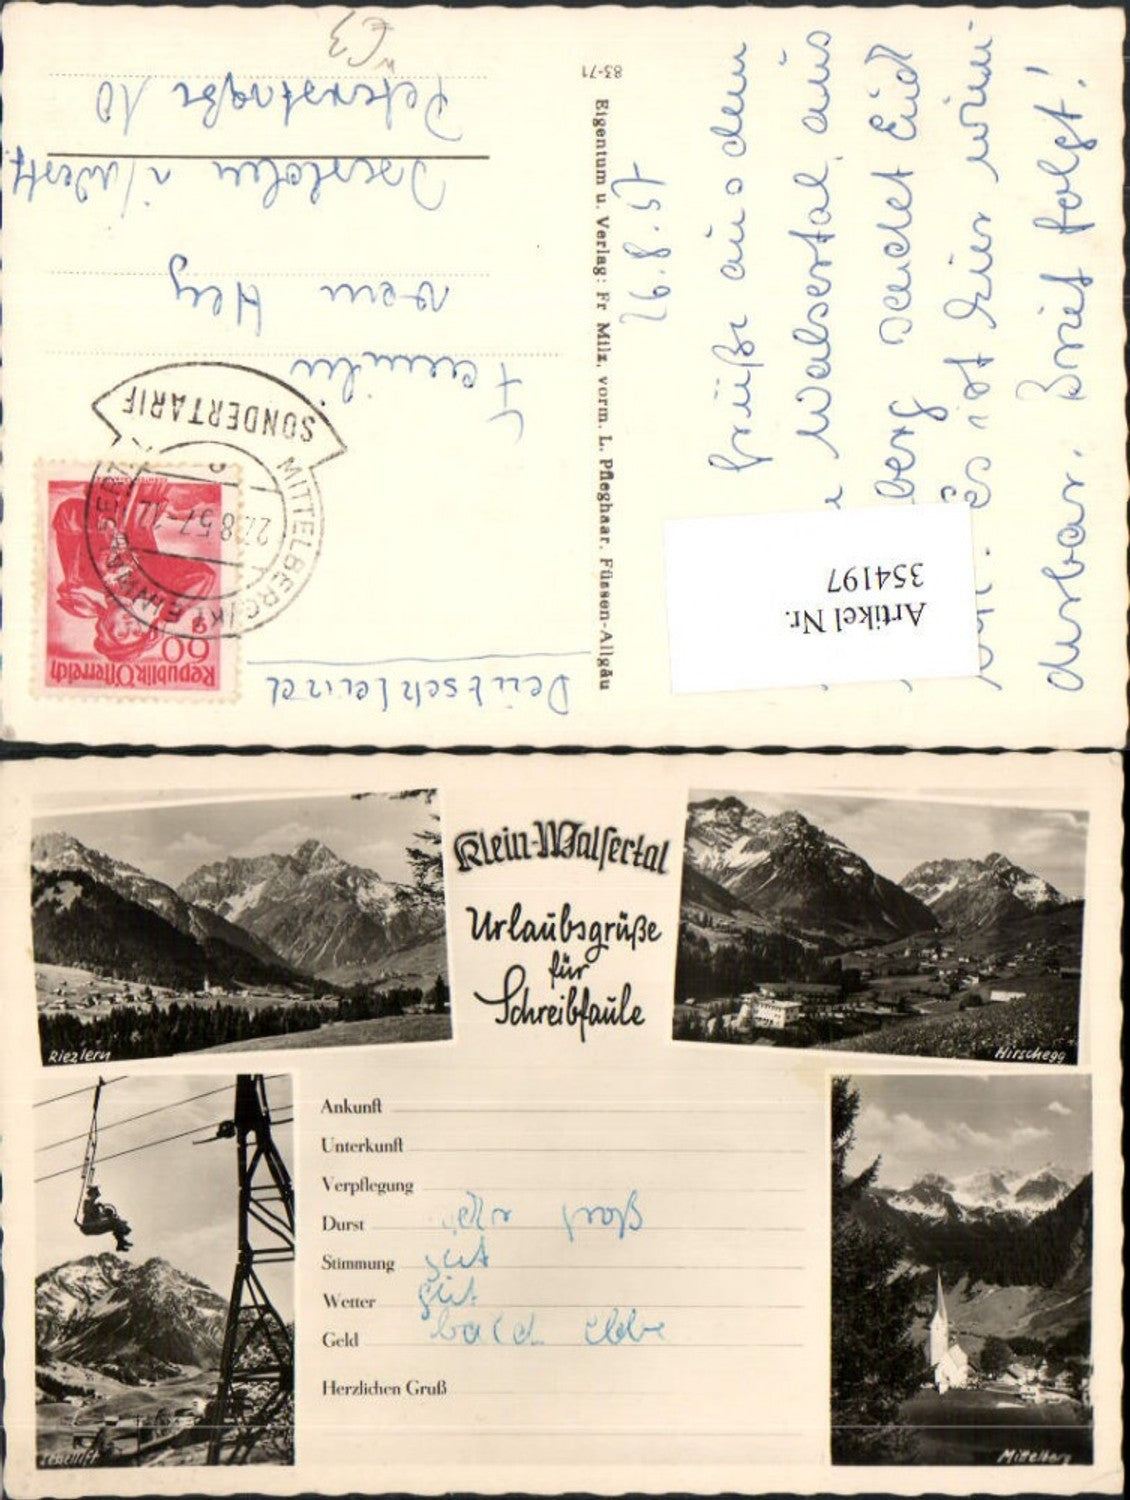 Deutschland
Republik Österreich
60 g
MITTELBERG (KLEINWALSERTAL)
27.8.57-17
SONDERTARIF
Familie
Iserlohn i/Westf.
Petersstraße 10
Eigentum u. Verlag: Fr Milz, vorm. L. Pfleghaar, Füssen-Allgäu
83-71
26.8.57
Grüße aus dem
Walsertal aus
berg sendet Euch
Es ist hier wun
derbar. Brief folgt!
Artikel Nr.
354197
Klein-Walsertal
Urlaubsgrüße
für
Schreibfaule
Riezlern
Hirschegg
Ankunft
Unterkunft
Verpflegung
Durst sehr groß
Stimmung gut
Wetter gut
Geld bald ebbe
Herzlichen Gruß
Sessellift
Mittelberg